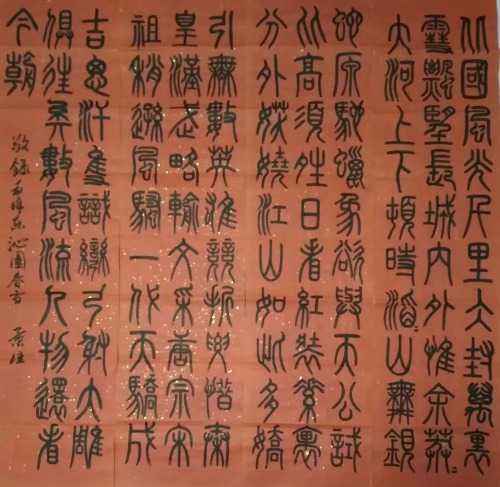 北國風光千里冰封萬裏
雪飄望長城內外惟余莽〻
大河上下頓時滔〻山舞銀
蛇原馳蠟象欲與天公試
比高須晴日看紅裝素裹
分外妖嬈江山如此多嬌
引無數英雄競折腰惜秦
皇漢武略輸文采唐宗宋
祖稍遜風騷一代天驕成
吉思汗隻識彎弓射大雕
俱往矣數風流人物還看
今朝
敬錄毛澤東沁園春雪